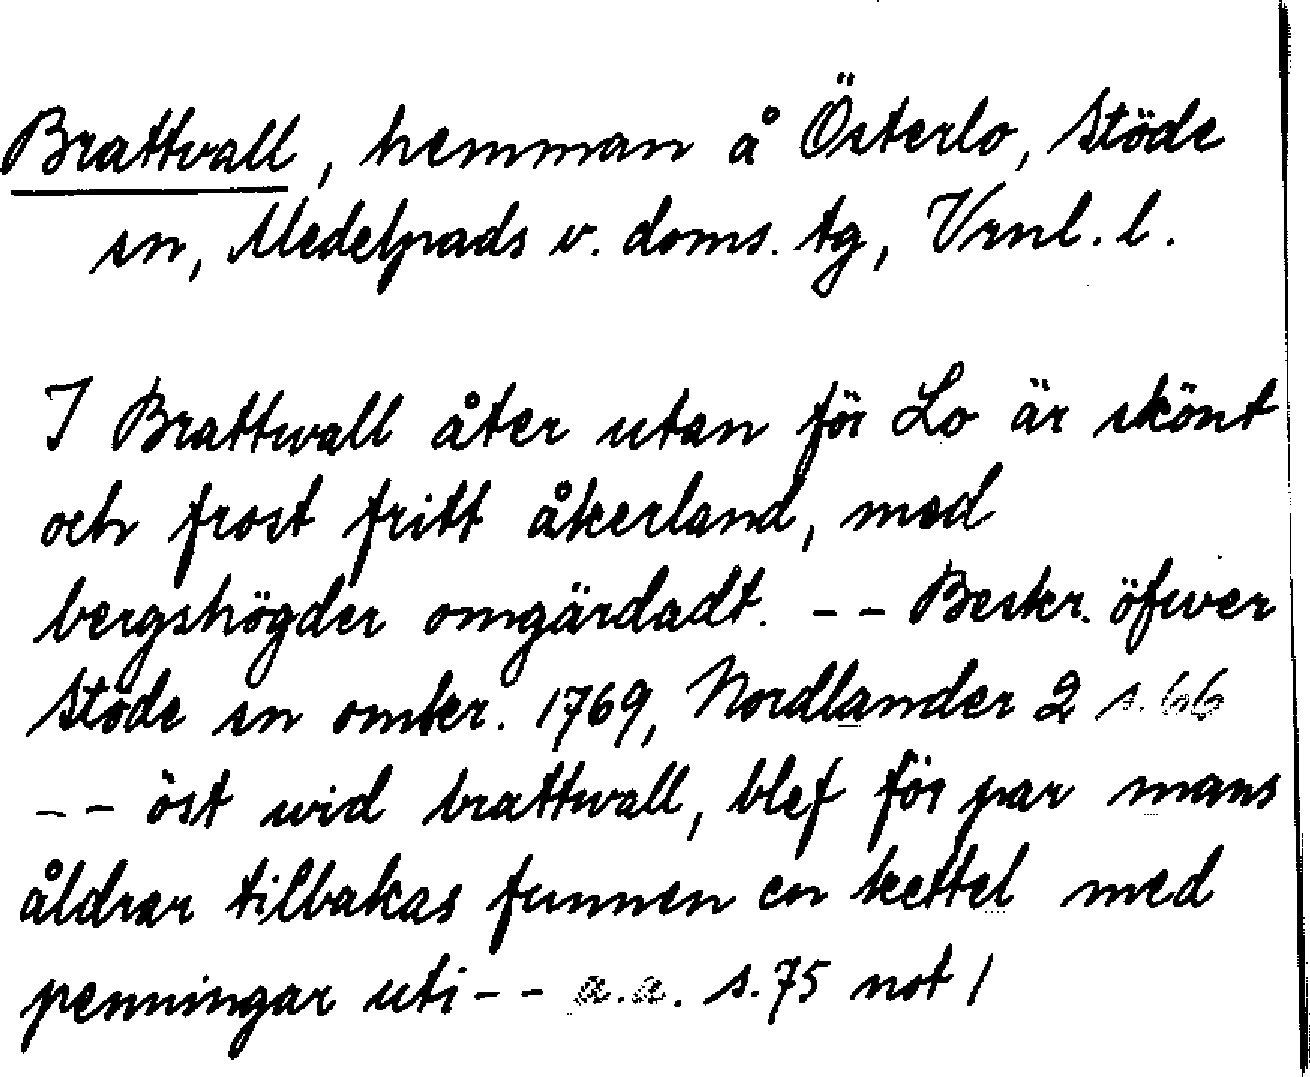 Brattvall, hemman å Österlo, Stöde
sn, Medelpads v. doms. tg, Vrnl. l.
I Brattwall åter utan för Lo är skönt
och frost fritt åkerland, med
bergshögder omgärdadt. -- Beskr. öfwer
Stöde sn omkr. 1769, Nordlander 2 s. 66
-- öst wid brattwall, blef för par mans
åldrar tilbakas funnen en kettel med
penningar uti -- a.a. s. 75 not 1